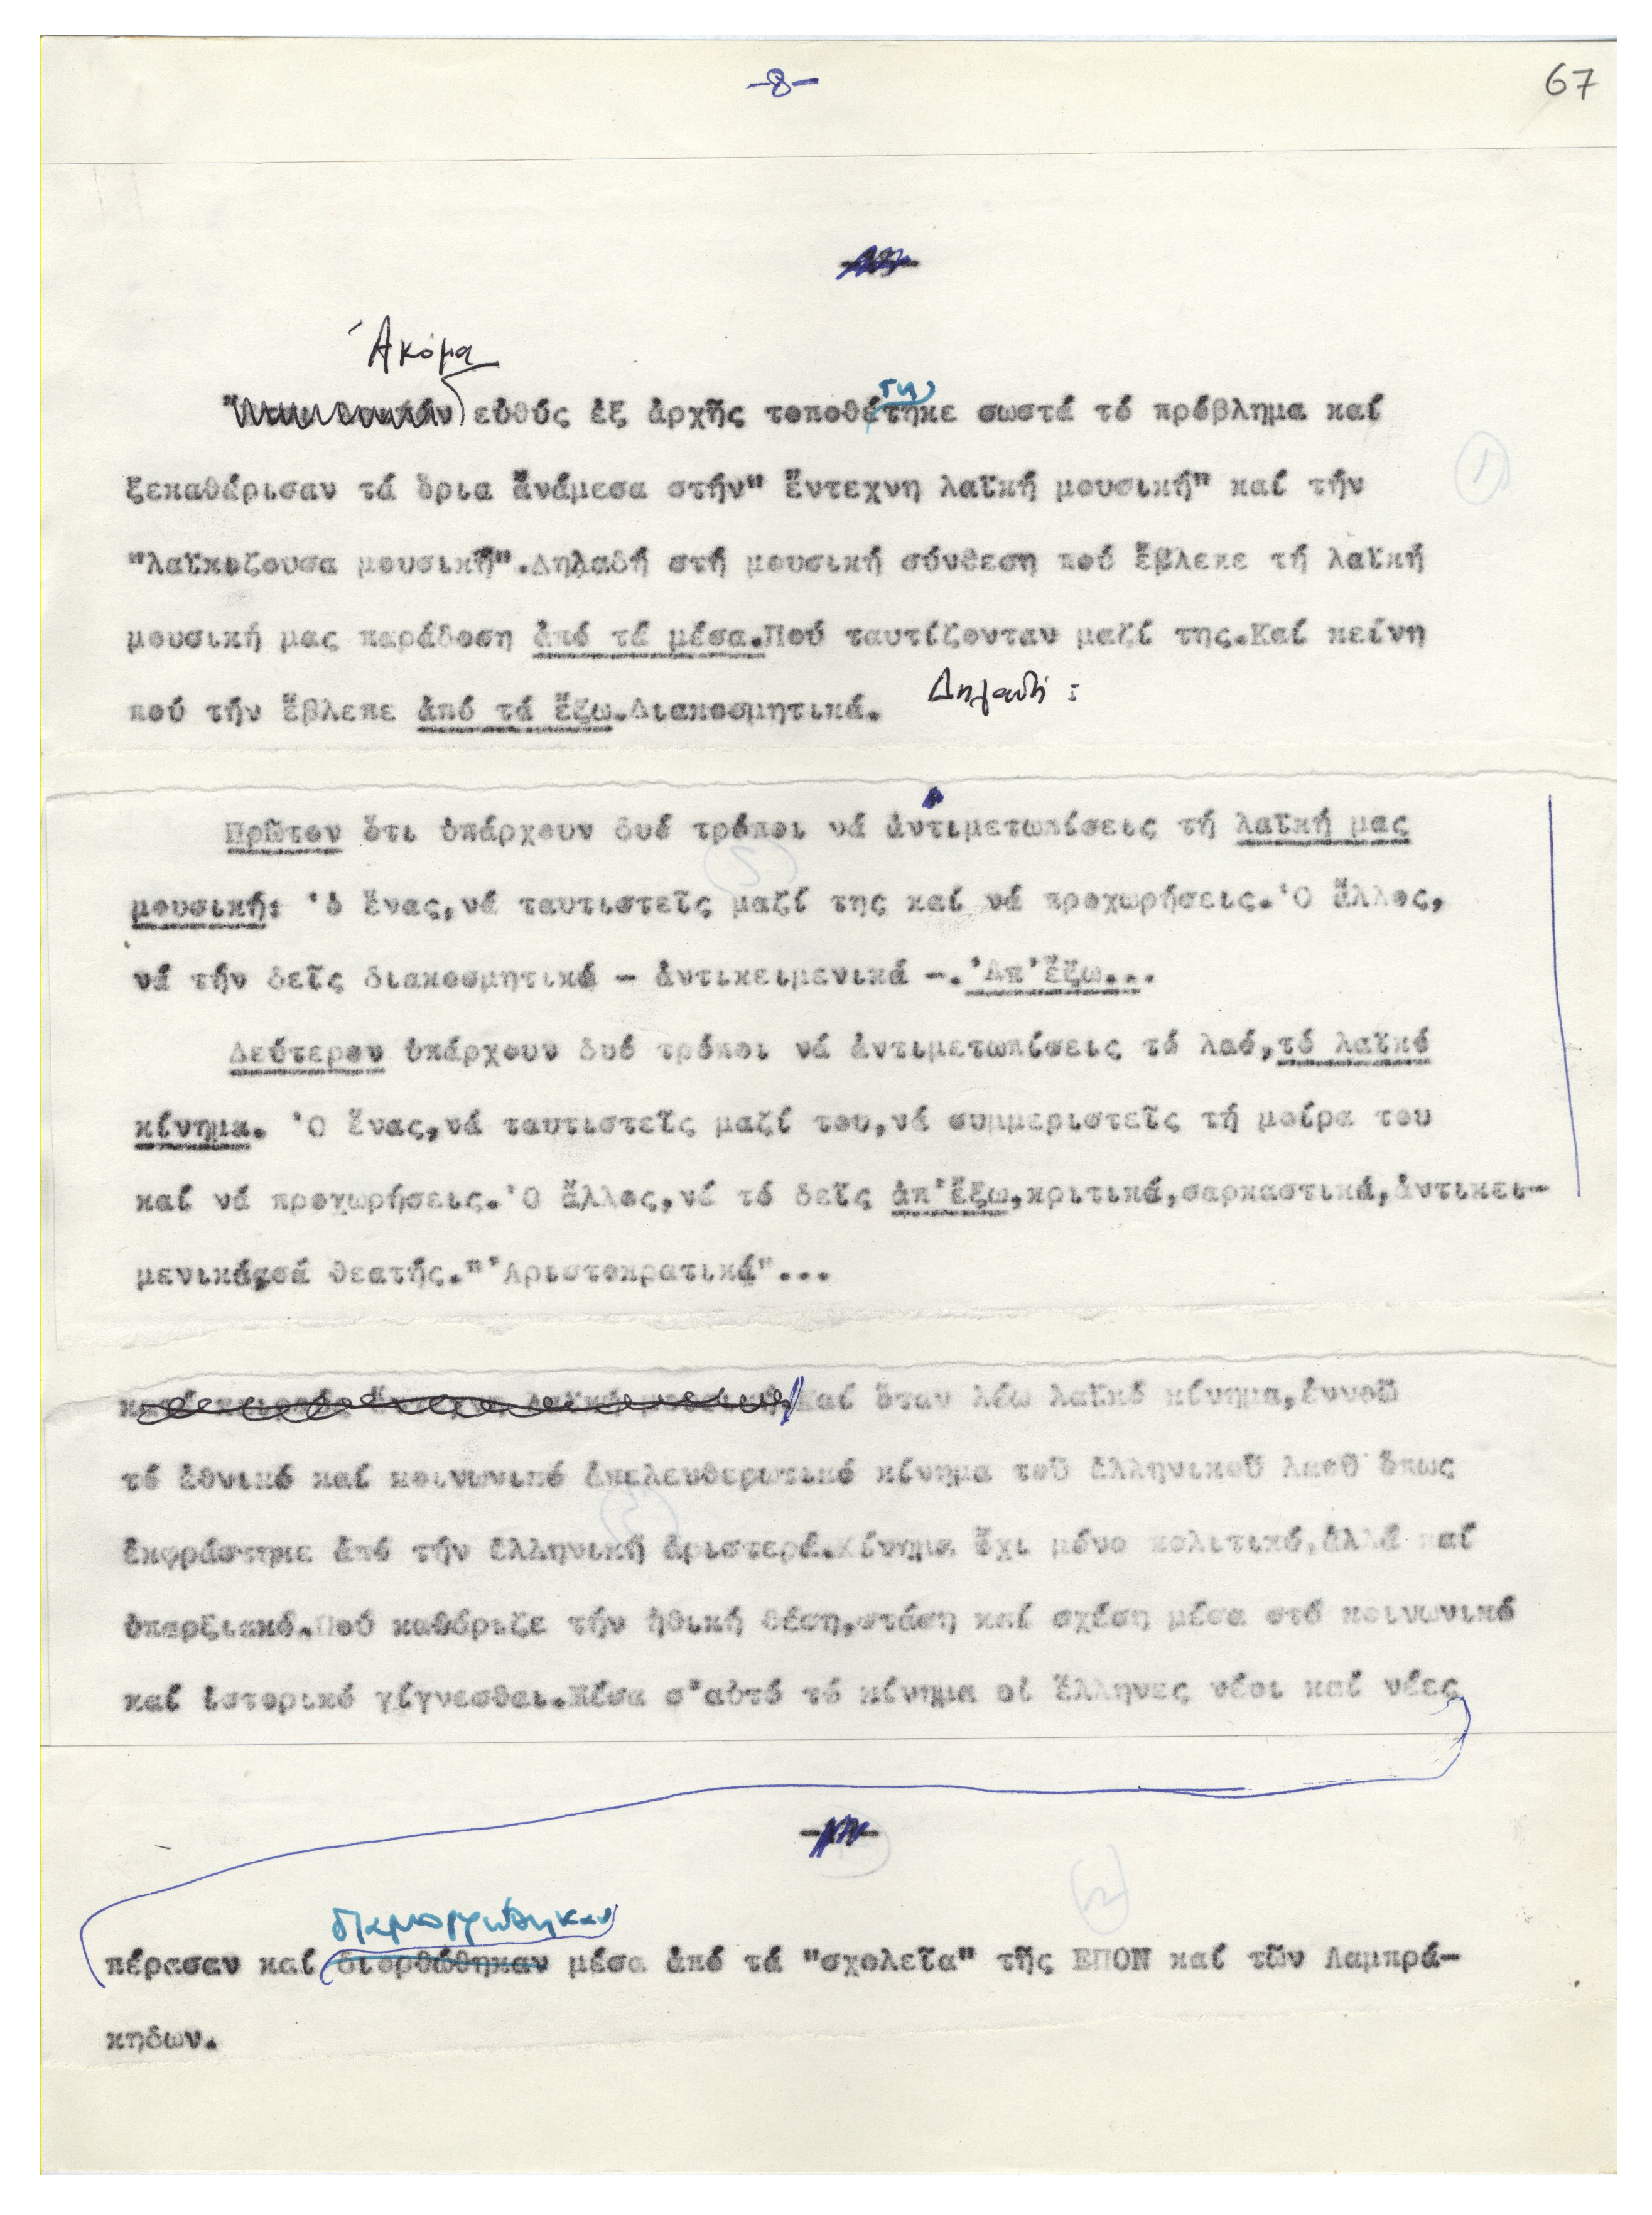 -8-
67
Ἀκόμα
τη
εὐθύς ἐξ ἀρχῆς τοποθέτηκε σωστά τό πρόβλημα καί
1
ξεκαθάρισαν τά ὅρια ἀνάμεσα στήν" ἔντεχνη λαϊκή μουσική" καί τήν
"λαϊκοζουσα μουσική".Δηλαδή στή μουσική σύνθεση πού ἔβλεπε τή λαϊκή
μουσική μας παράδοση ἀπό τά μέσα.Πού ταυτίζονταν μαζί της.Καί κείνη
πού τήν ἔβλεπε ἀπό τά ἔξω.Διακοσμητικά. Δηλαδή :
Πρῶτον ὅτι ὑπάρχουν δυό τρόποι νά ἀντιμετωπίσεις τή λαϊκή μας
μουσική: 'ὁ ἕνας,νά ταυτιστεῖς μαζί της καί νά προχωρήσεις.'Ο ἄλλος,
νά τήν δεῖς διακοσμητικά - ἀντικειμενικά -.'Απ'ἔξω...
Δεύτερον ὑπάρχουν δυό τρόποι νά ἀντιμετωπίσεις τό λαό,τό λαϊκό
κίνημα. 'Ο ἕνας,νά ταυτιστεῖς μαζί του,νά συμμεριστεῖς τή μοίρα του
καί νά προχωρήσεις.'Ο ἄλλος,νά τό δεῖς ἀπ'ἔξω,κριτικά,σαρκαστικά,ἀντικει-
μενικά,σά θεατής."'Αριστοκρατικά"...
Καί ὅταν λέω λαϊκό κίνημα,ἐννοῶ
τό ἐθνικό καί κοινωνικό ἀπελευθερωτικό κίνημα τοῦ ἑλληνικοῦ λαοῦ ὅπως
ἐκφράστηκε ἀπό τήν ἑλληνική ἀριστερά.Κίνημα ὄχι μόνο πολιτικό,ἀλλά καί
ὑπαρξιακό.Πού καθόριζε τήν ἠθική θέση,στάση καί σχέση μέσα στό κοινωνικό
καί ἱστορικό γίγνεσθαι.Μέσα σ'αὐτό τό κίνημα οἱ ἕλληνες νέοι καί νέες
2
διαμορφώθηκαν
πέρασαν καί διορθώθηκαν μέσα ἀπό τά "σχολεῖα" τῆς ΕΠΟΝ καί τῶν Λαμπρά-
κηδων.